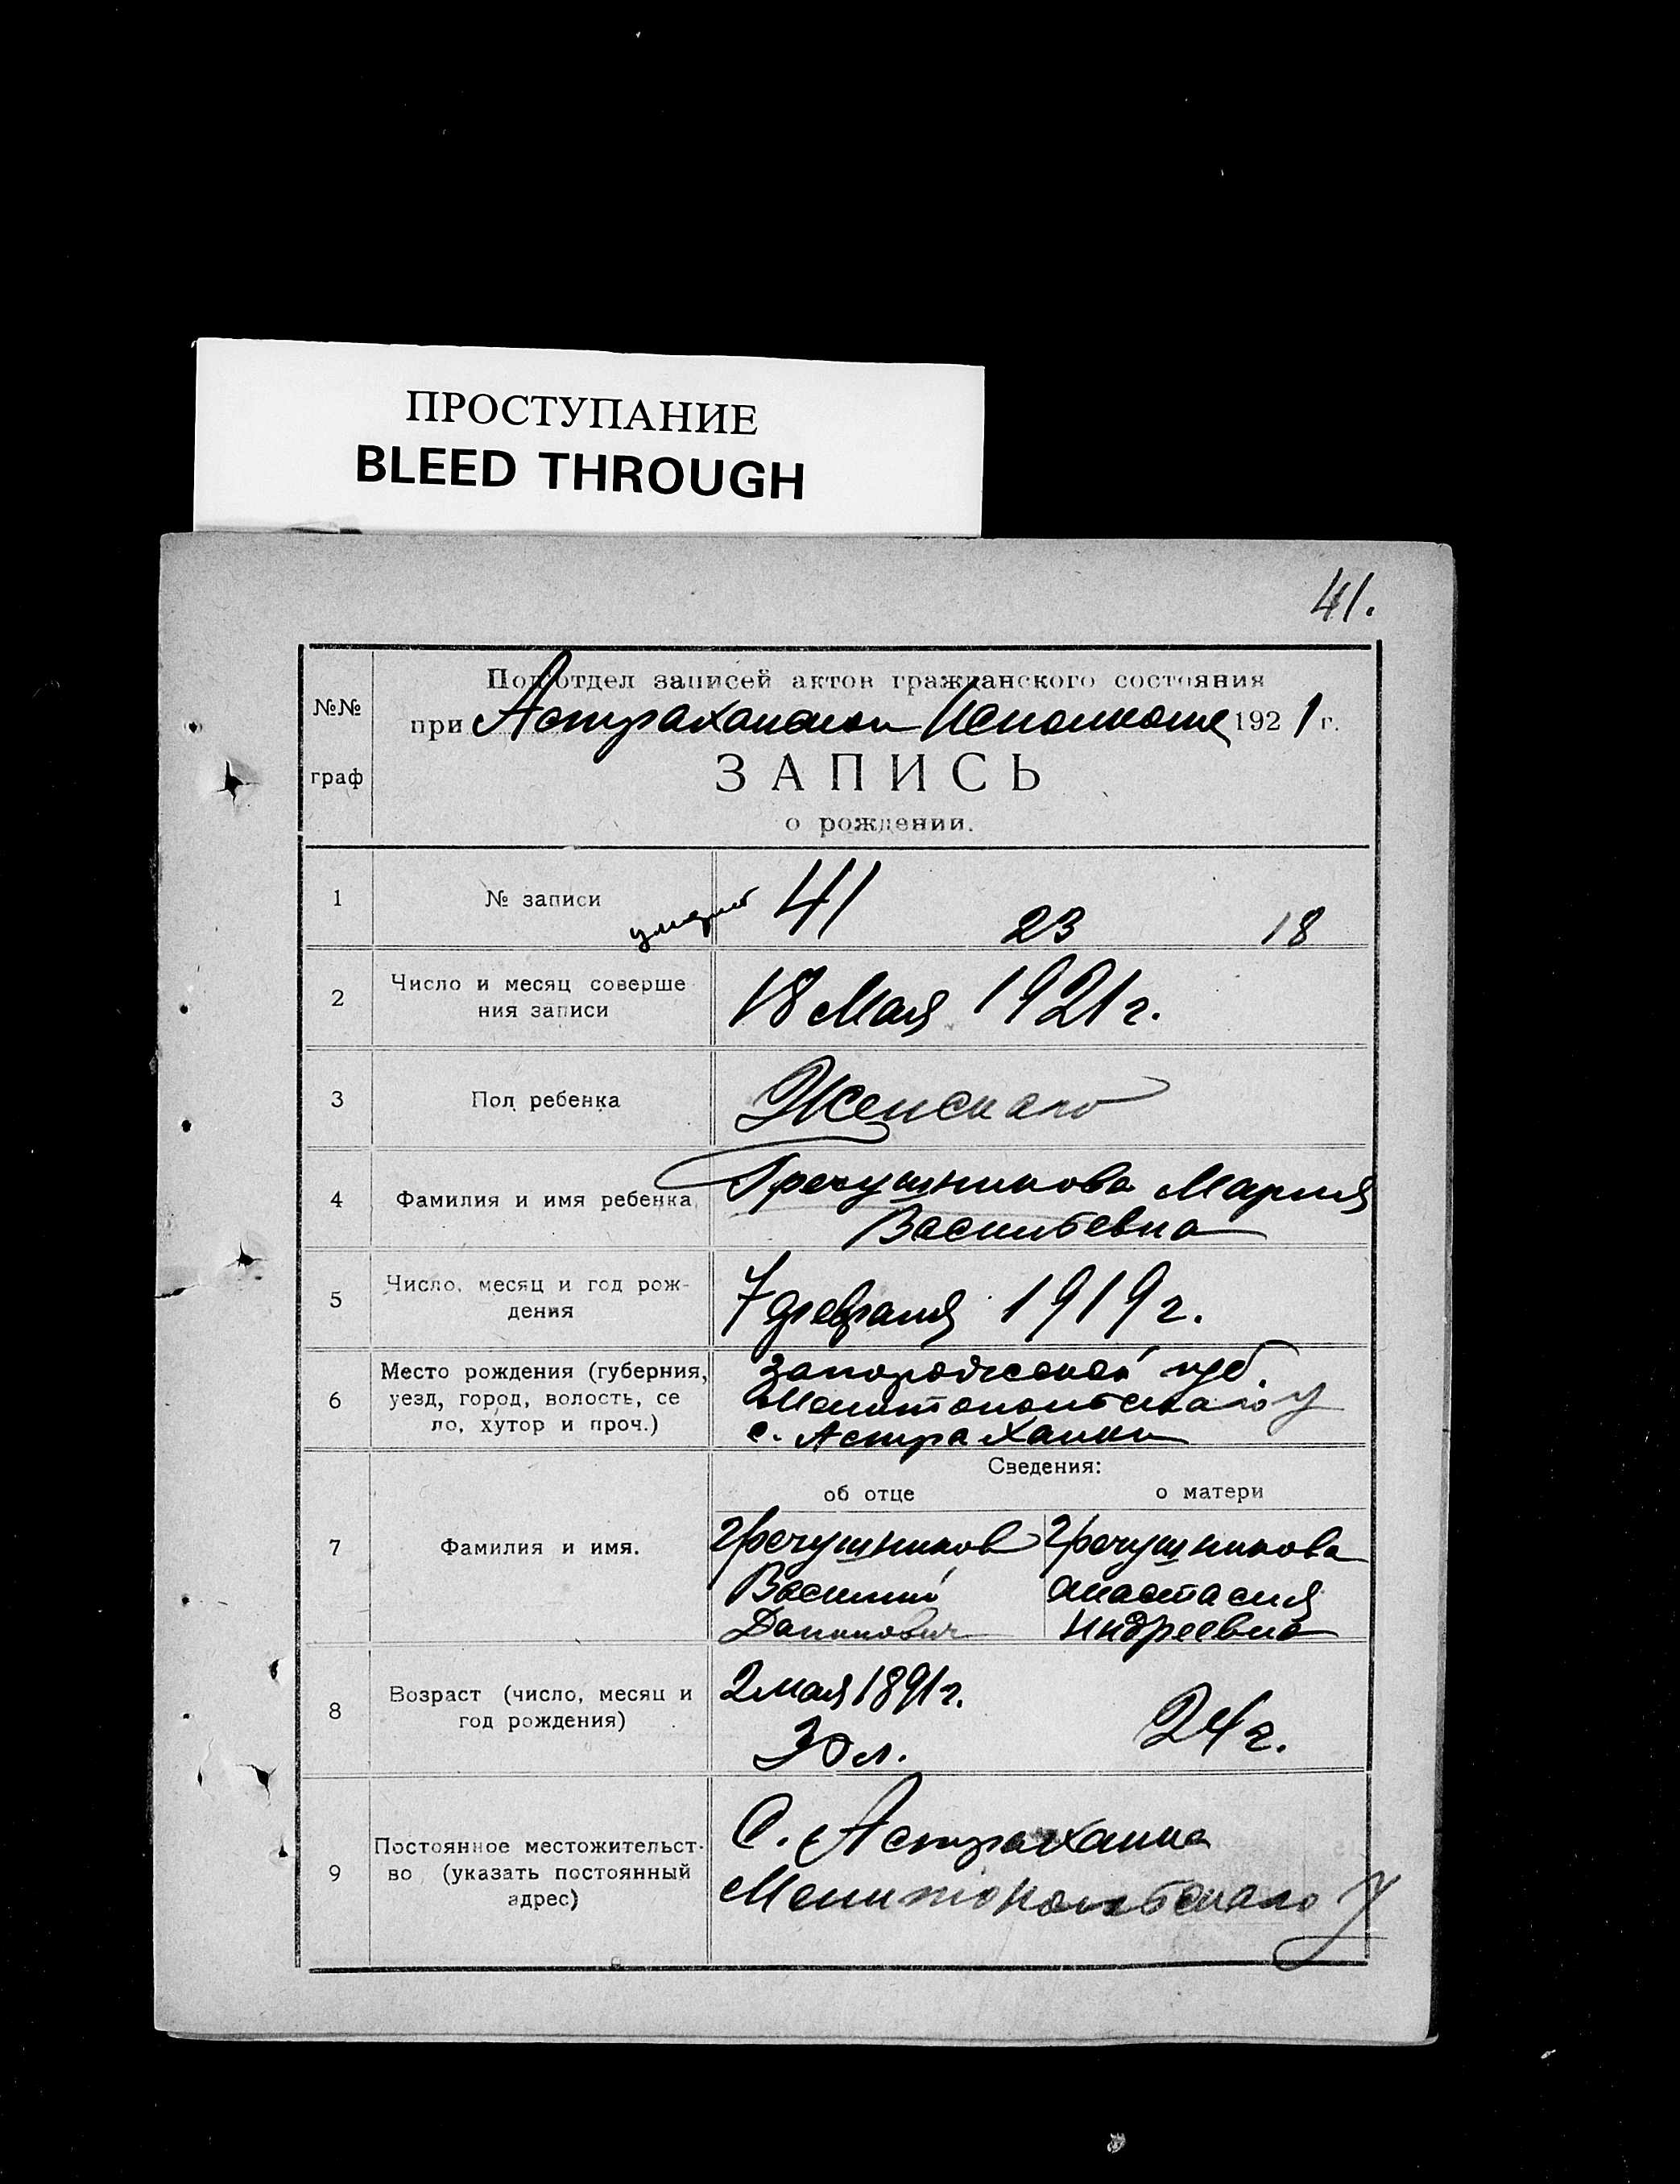 ПРОСТУПАНИЕ
BLEED THROUGH
41.
№№
граф
Подотдел записей актов гражданского состояния
при Астраханском Исполкоме 1921 г.
ЗАПИСЬ
о рождении.
1 № записи 41 23 18
2 Число и месяц соверше
ния записи
18 Мая 1921 г.
3 Пол ребенка Женскаго
4 Фамилия и имя ребенка
Гречушникова Мария
Васильевна
5 Число, месяц и год рож-
дения
7 февраля 1919 г.
6 Место рождения (губерния,
уезд, город, волость, се
ло, хутор и проч.)
Запорожской губ.
Мелитопольскаго у
с. Астраханка
Сведения:
об отце о матери
7 Фамилия и имя.
Гречушников
Василий
Данилович
Гречушникова
Анастасия
Индреевна
8 Возраст (число, месяц и
год рождения)
2 мая 1891 г.
30 л.
24 г.
9 Постоянное местожительст-
во (указать постоянный
адрес)
С. Астраханка
Мелитопольскаго У